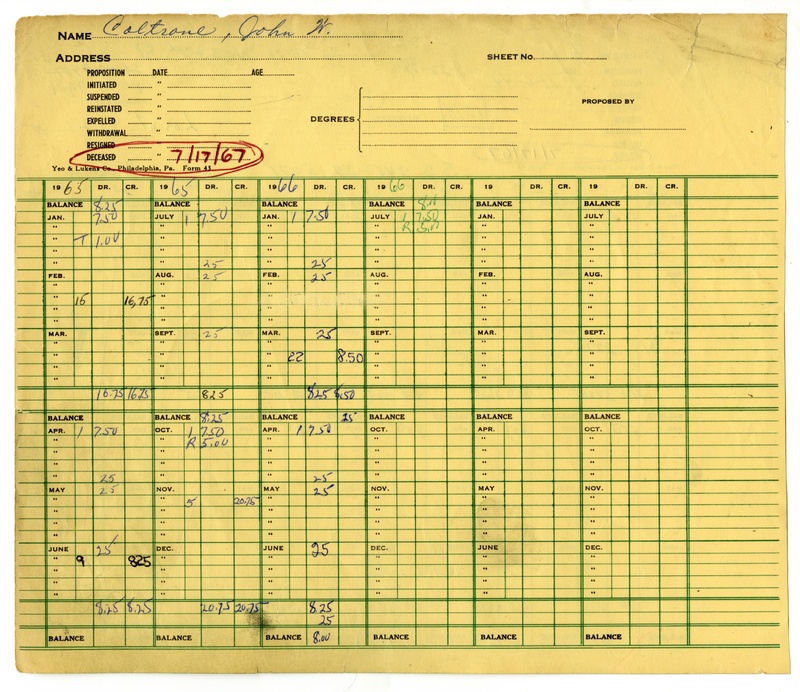 NAME Coltrane, John W.
ADDRESS SHEET No.
PROPOSITION DATE AGE
INITIATED "
SUSPENDED "
REINSTATED "
EXPELLED "
WITHDRAWAL "
RESIGNED "
DECEASED " 7/17/67
DEGREES
PROPOSED BY
Yeo & Lukens Co., Philadelphia, Pa. Form 43
1965 DR. CR. 1965 DR. CR. 1966 DR. CR. 1966 DR. CR. 19 DR. CR. 19 DR. CR.
BALANCE 8.25 BALANCE BALANCE BALANCE 8.00 BALANCE BALANCE
JAN. 7.50 JULY 1 7.50 JAN. 1 7.50 JULY 1 7.50 JAN. JULY
" " " " R 5.00 " "
" T 1.00 " " " " "
" " " " " "
" " 25 " 25 " " "
FEB. AUG. 25 FEB. 25 AUG. FEB. AUG.
" " " " " "
" 16 16.75 " " " " "
" " " " " "
" " " " " "
MAR. SEPT. 25 MAR. 25 SEPT. MAR. SEPT.
" " " " " "
" " " 22 8.50 " " "
" " " " " "
" " " " " "
16.75 16.75 825 8.25 8.50
BALANCE BALANCE 8.25 BALANCE 25 BALANCE BALANCE BALANCE
APR. 1 7.50 OCT. 1 7.50 APR. 1 7.50 OCT. APR. OCT.
" " R 5.00 " " " "
" " " " " "
" " " " " "
" 25 " " 25 " " "
MAY 25 NOV. MAY 25 NOV. MAY NOV.
" " 5 20.75 " " " "
" " " " " "
" " " " " "
" " " " " "
JUNE 25 DEC. JUNE 25 DEC. JUNE DEC.
" 9 825 " " " " "
" " " " " "
" " " " " "
8.25 8.25 20.75 20.75 8.25
25
BALANCE BALANCE BALANCE 8.00 BALANCE BALANCE BALANCE